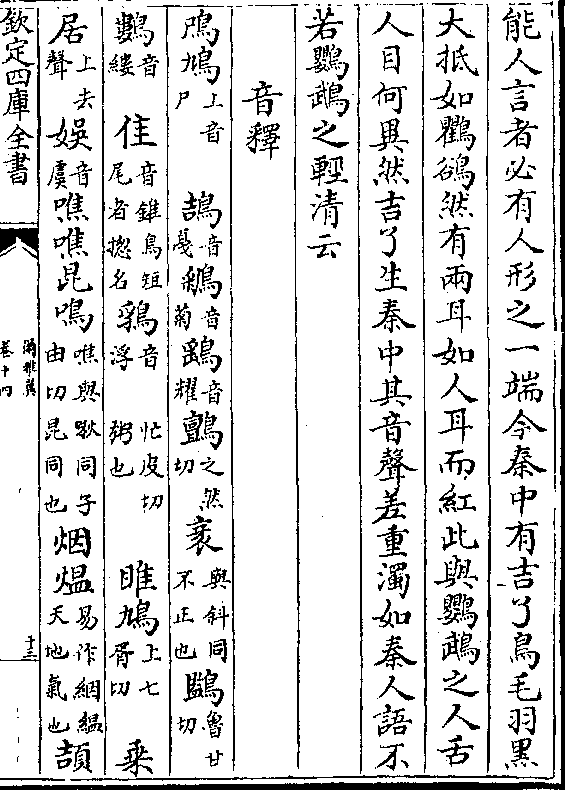 能人言者必有人形之一端今秦中有吉了鳥毛羽黑
大抵如鸜鵒然有兩耳如人耳而紅此與鸚鵡之人舌
人目何異然吉了生秦中其音聲差重濁如秦人語不
若鸚鵡之輕清云
音釋
鳲鳩上音尸 鴶音戞鵴音菊鷂音耀鸇之然切衺與斜同不正也㔋魯甘切
鷜音縷 隹音錐鳥短尾者揔名鵅音浮 忙皮切粥也 雎鳩上七胥切 椉
居上去聲 娛音虞噍噍昆鳴噍與啾同子由切昆同也烟熅易作絪緼天地氣也頡
欽定四庫全書
爾雅翼
卷十四
十三